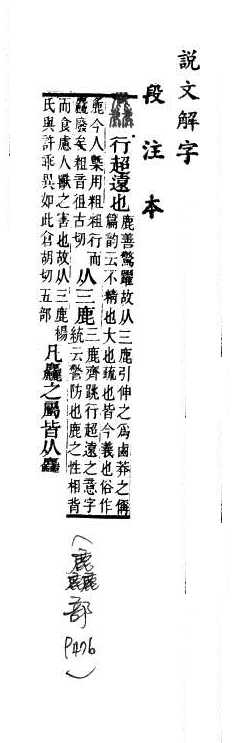 説文解字
段注本
麤 行超遠也
鹿善驚躍故从三鹿引伸之爲鹵莽之偁
篇韵云不精也大也疏也皆今義也俗作
麁今人槩用粗粗行而
麤廢矣粗音徂古切
从三鹿
三鹿齊跳行超遠之意字
統云警防也鹿之性相背
而食慮人獸之害也故从三鹿楊
氏與許乖異如此倉胡切五部
凡麤之屬皆从麤
(麤部 P476)